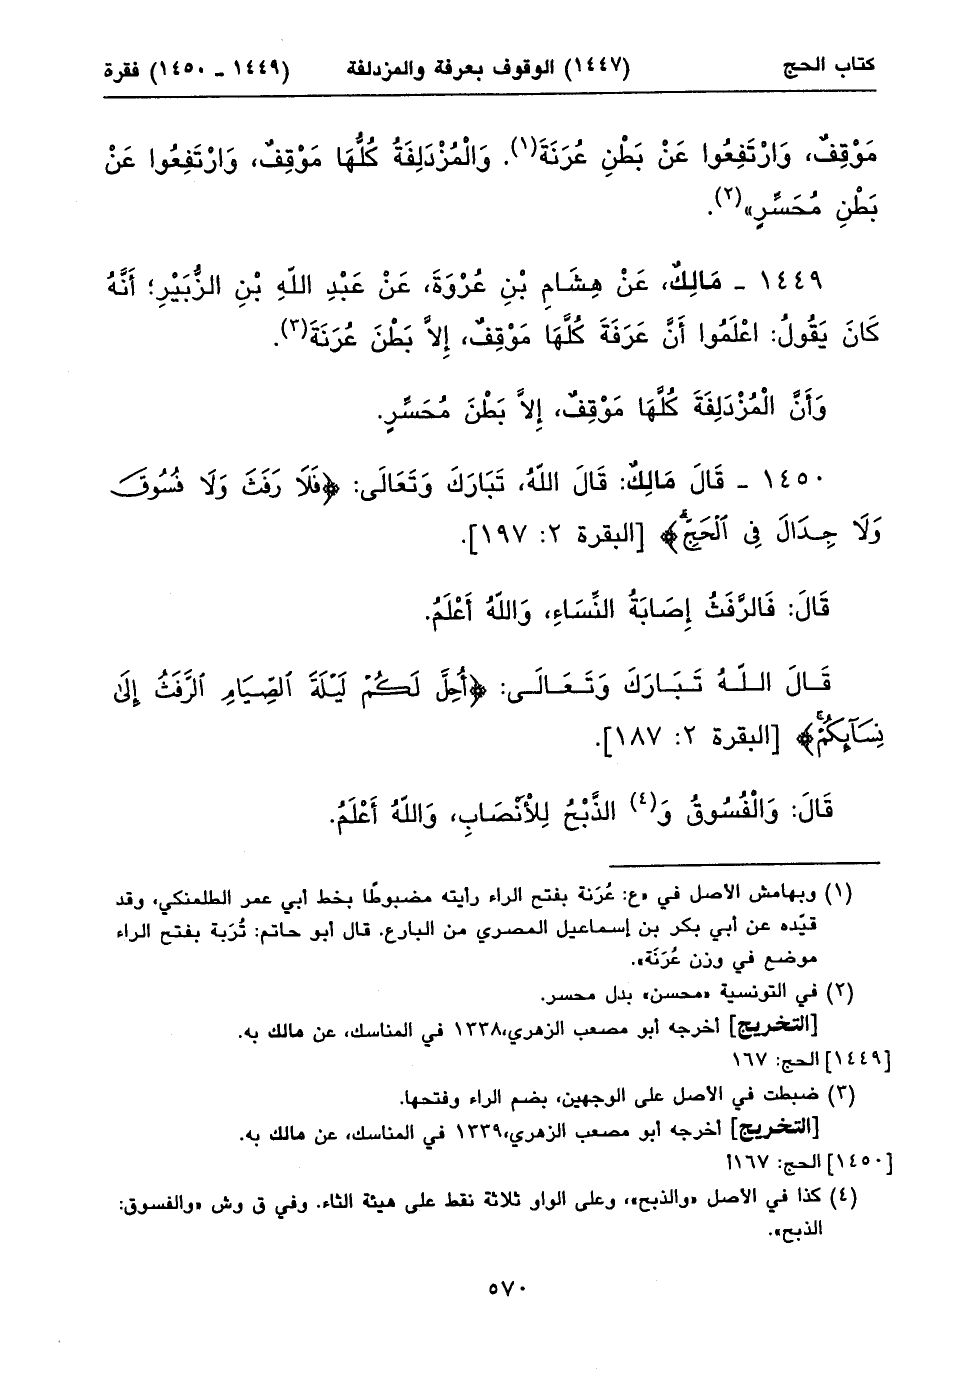 كتاب الحج (١٤٤٧) الوقوف بعرفة والمزدلفة (١٤٤٩ - ١٤٥٠) فقرة
مَوْقِفٌ، وَارْتَفِعُوا عَنْ بَطْنِ عُرَنَةَ(١). وَالْمُزْدَلِفَةُ كُلُّهَا مَوْقِفٌ، وَارْتَفِعُوا عَنْ
بَطْنِ مُحَسِّرٍ»(٢).
١٤٤٩ - مَالِكٌ، عَنْ هِشَامِ بْنِ عُرْوَةَ، عَنْ عَبْدِ اللّهِ بْنِ الزُّبَيْرِ؛ أَنَّهُ
كَانَ يَقُولُ: اعْلَمُوا أَنَّ عَرَفَةَ كُلَّهَا مَوْقِفٌ، إِلاَّ بَطْنَ عُرَنَةَ(٣).
وَأَنَّ الْمُزْدَلِفَةَ كُلَّهَا مَوْقِفٌ، إِلاَّ بَطْنَ مُحَسِّرٍ.
١٤٥٠ - قَالَ مَالِكٌ: قَالَ اللّهُ، تَبَارَكَ وَتَعَالَى: ﴿فَلَا رَفَثَ وَلَا فُسُوقَ
وَلَا جِدَالَ فِى ٱلْحَجِّۗ﴾ [البقرة ٢: ١٩٧].
قَالَ: فَالرَّفَثُ إِصَابَةُ النِّسَاءِ، وَاللّهُ أَعْلَمُ.
قَالَ اللّهُ تَبَارَكَ وَتَعَالَى: ﴿أُحِلَّ لَكُمْ لَيْلَةَ ٱلصِّيَامِ ٱلرَّفَثُ إِلَىٰ
نِسَآئِكُمْۚ﴾ [البقرة ٢: ١٨٧].
قَالَ: وَالْفُسُوقُ وَ(٤) الذَّبْحُ لِلأَنْصَابِ، وَاللّهُ أَعْلَمُ.
(١) وبهامش الأصل في «ع: عُرَنة بفتح الراء رأيته مضبوطًا بخط أبي عمر الطلمنكي، وقد
قيّده عن أبي بكر بن إسماعيل المصري من البارع. قال أبو حاتم: تُرَبة بفتح الراء
موضع في وزن عُرَنَة».
(٢) في التونسية «محسن» بدل محسر.
[التخريج] أخرجه أبو مصعب الزهري،١٣٣٨ في المناسك، عن مالك به.
[١٤٤٩] الحج: ١٦٧
(٣) ضبطت في الأصل على الوجهين، بضم الراء وفتحها.
[التخريج] أخرجه أبو مصعب الزهري،١٣٣٩ في المناسك، عن مالك به.
[١٤٥٠] الحج: ١٦٧أ
(٤) كذا في الأصل «والذبح»، وعلى الواو ثلاثة نقط على هيئة الثاء. وفي ق وش «والفسوق:
الذبح».
٥٧٠